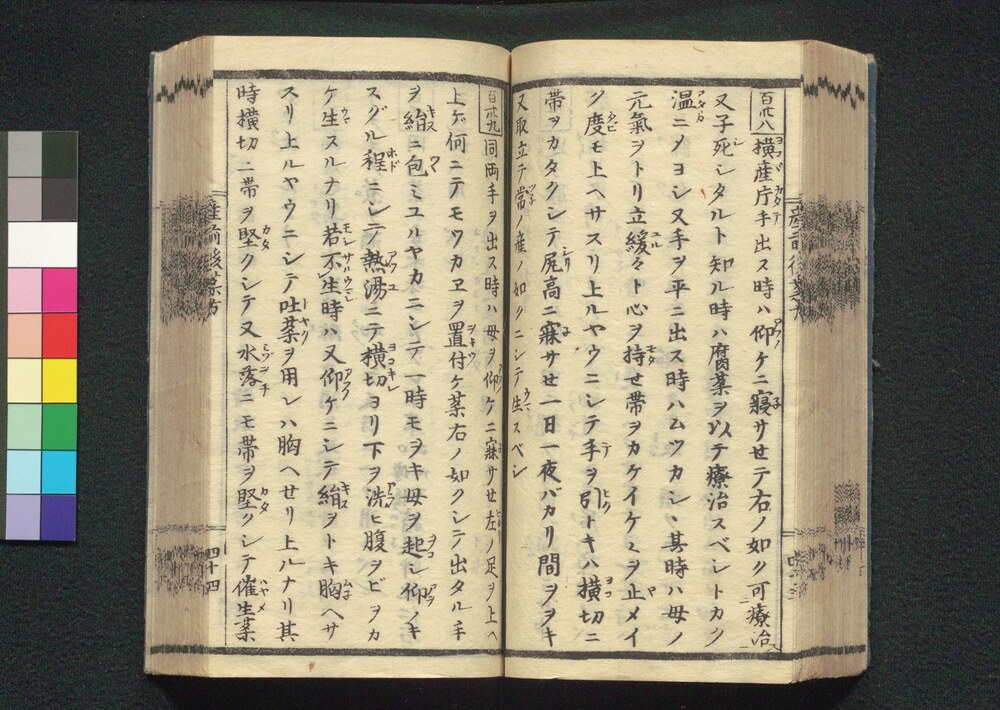 百卅八 横産片手出ス時ハ仰ケニ寢サセテ右ノ如ク可療治
又子死シタルト知ル時ハ腐薬ヲ以テ療治スベシトカク
温ニノヨシ又手ヲ平ニ出ス時ハムツカシヽ其時ハ母ノ
元氣ヲトリ立緩々ト心ヲ持セ帯ヲカケイケミヲ止メイ
ク度モ上ヘサスリ上ルヤウニシテ手ヲ引トキハ横切ニ
帯ヲカタクシテ尻高ニ寐サセ一日一夜バカリ間ヲヲキ
又取立テ常ノ産ノ如クニシテ生スベシ
百卅九 同両手ヲ出ス時ハ母ヲ仰ケニ寐サセ左ノ足ヲ上ヘ
上ケ何ニテモツカヱヲ置付ケ薬右ノ如クシテ出タル手
ヲ絹ニ包ミユルヤカニシテ一時モヲキ母ヲ起シ仰ノキ
スグル程ニシテ熱湯ニテ横切ヨリ下ヲ洗ヒ腹ヲビヲカ
ケ生スルナリ若不生時ハ又仰ケニシテ絹ヲトキ胸ヘサ
スリ上ルヤウニシテ吐薬ヲ用レハ胸ヘセリ上ルナリ其
時横切ニ帯ヲ堅クシテ又水落ニモ帯ヲ堅クシテ催生薬
産前後薬方
四十四